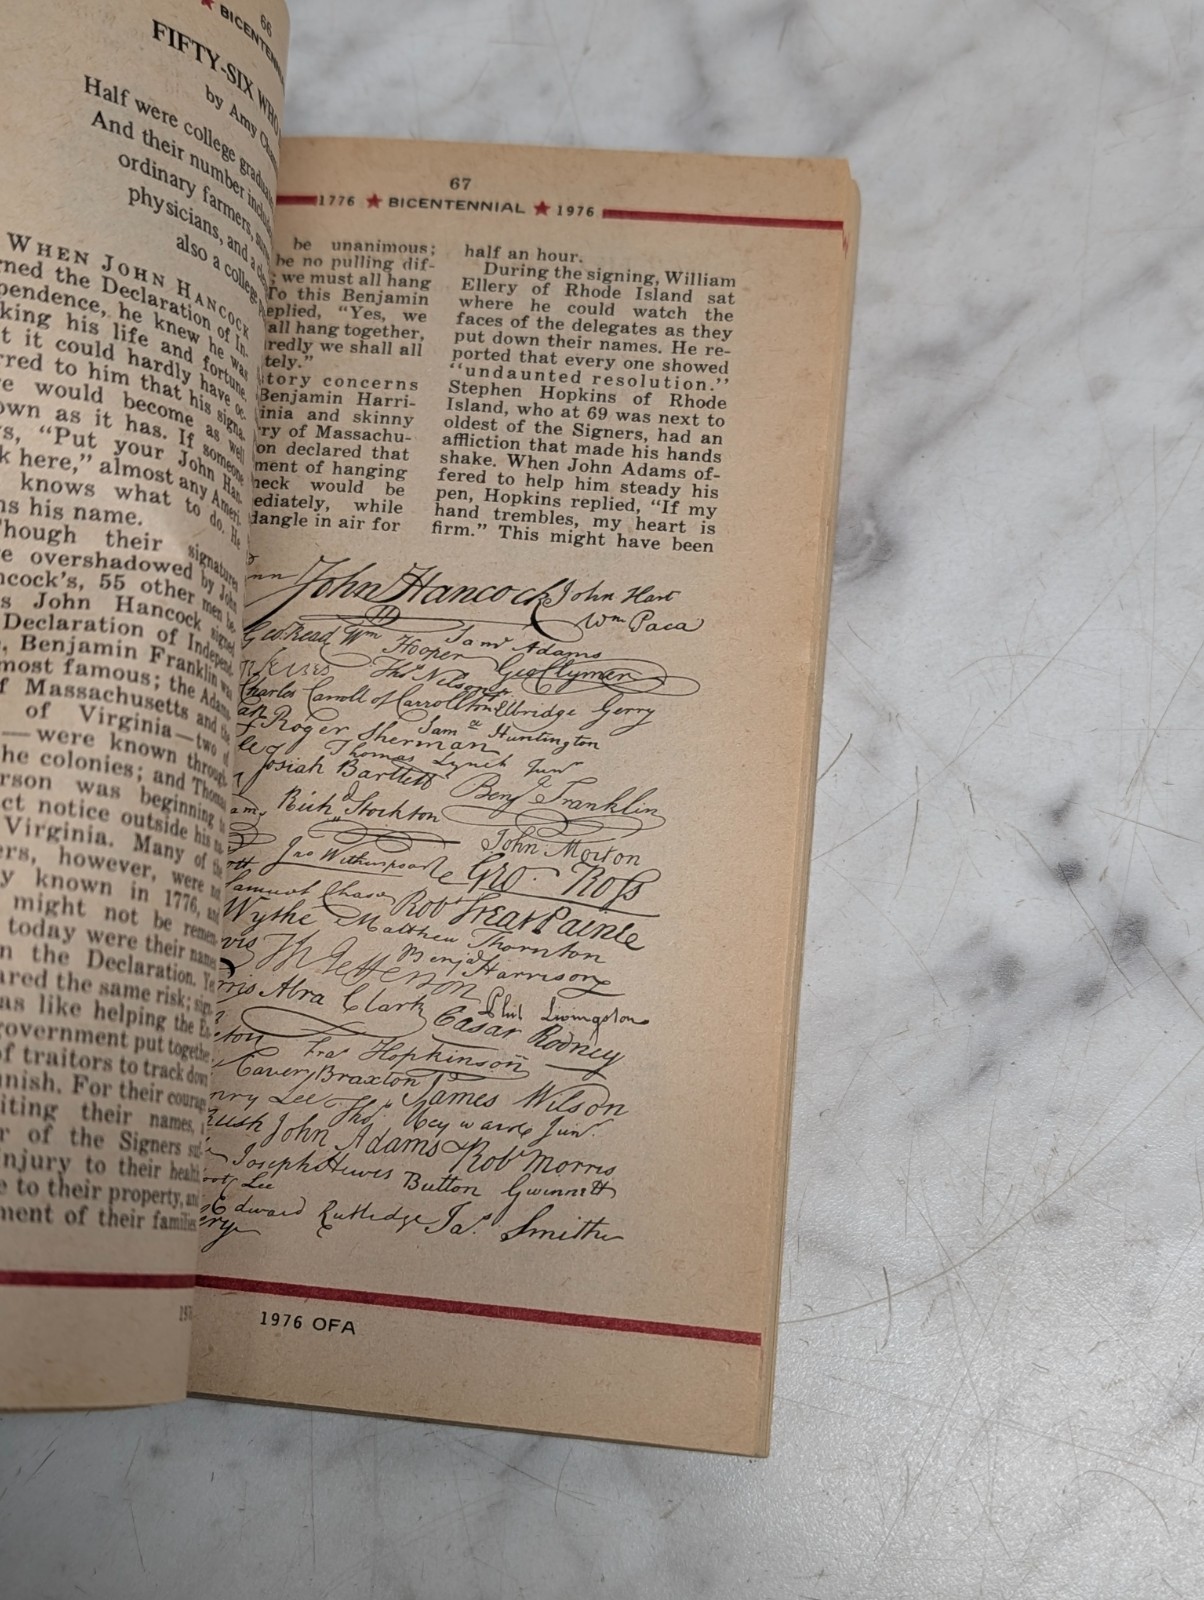 66
★ BICENTENNIAL
FIFTY-SIX WHO
by Amy
Half were college
And their number
ordinary farmers,
physicians, and a
also a college
WHEN JOHN HANCOCK
the Declaration of In-
he knew he was
king his life and fortune.
t it could hardly have oc-
rred to him that his signa-
would become as well
own as it has. If someone
s, "Put your John Han-
k here," almost any Ameri-
knows what to do. He
ns his name.
hough their signatures
e overshadowed by John
ncock's, 55 other men be-
s John Hancock signed
Declaration of Independ-
Benjamin Franklin was
most famous; the Adams
f Massachusetts and the
of Virginia—two of
—were known through-
he colonies; and Thomas
rson was beginning to
ct notice outside his
Virginia. Many of the
ers, however, were not
y known in 1776, and
might not be remem-
today were their names
n the Declaration. Ye
ared the same risk; sign
as like helping the
government put together
of traitors to track down
nish. For their courage
iting their names,
r of the Signers
njury to their health
e to their property, and
ment of their families
67
1776 ★ BICENTENNIAL ★ 1976
be unanimous;
be no pulling dif-
; we must all hang
To this Benjamin
eplied, "Yes, we
all hang together,
redly we shall all
tely."
tory concerns
Benjamin Harri-
inia and skinny
ry of Massachu-
on declared that
ment of hanging
neck would be
ediately, while
dangle in air for
half an hour.
During the signing, William
Ellery of Rhode Island sat
where he could watch the
faces of the delegates as they
put down their names. He re-
ported that every one showed
"undaunted resolution."
Stephen Hopkins of Rhode
Island, who at 69 was next to
oldest of the Signers, had an
affliction that made his hands
shake. When John Adams of-
fered to help him steady his
pen, Hopkins replied, "If my
hand trembles, my heart is
firm." This might have been
John Hancock John Hart
Wm Paca
Geo Read Wm Hooper Saml Adams
Thos Nelson jr Geo Clymer
Charles Carroll of Carrollton Elbridge Gerry
Roger Sherman Saml Huntington
Josiah Bartlett Thomas Lynch Junr
Benj Franklin
Richd Stockton
John Morton
Jno Witherspoon Geo Ross
Samuel Chase Robt Treat Paine
Wythe Matthew Thornton
Th Jefferson Benj Harrison
Abra Clark Phil Livingston
Cæsar Rodney
Fras Hopkinson
Carter Braxton James Wilson
Lee Thos Heyward Junr
Rush John Adams Robt Morris
Joseph Hewes Button Gwinnett
Lee
Edward Rutledge Jas Smith
1976 OFA